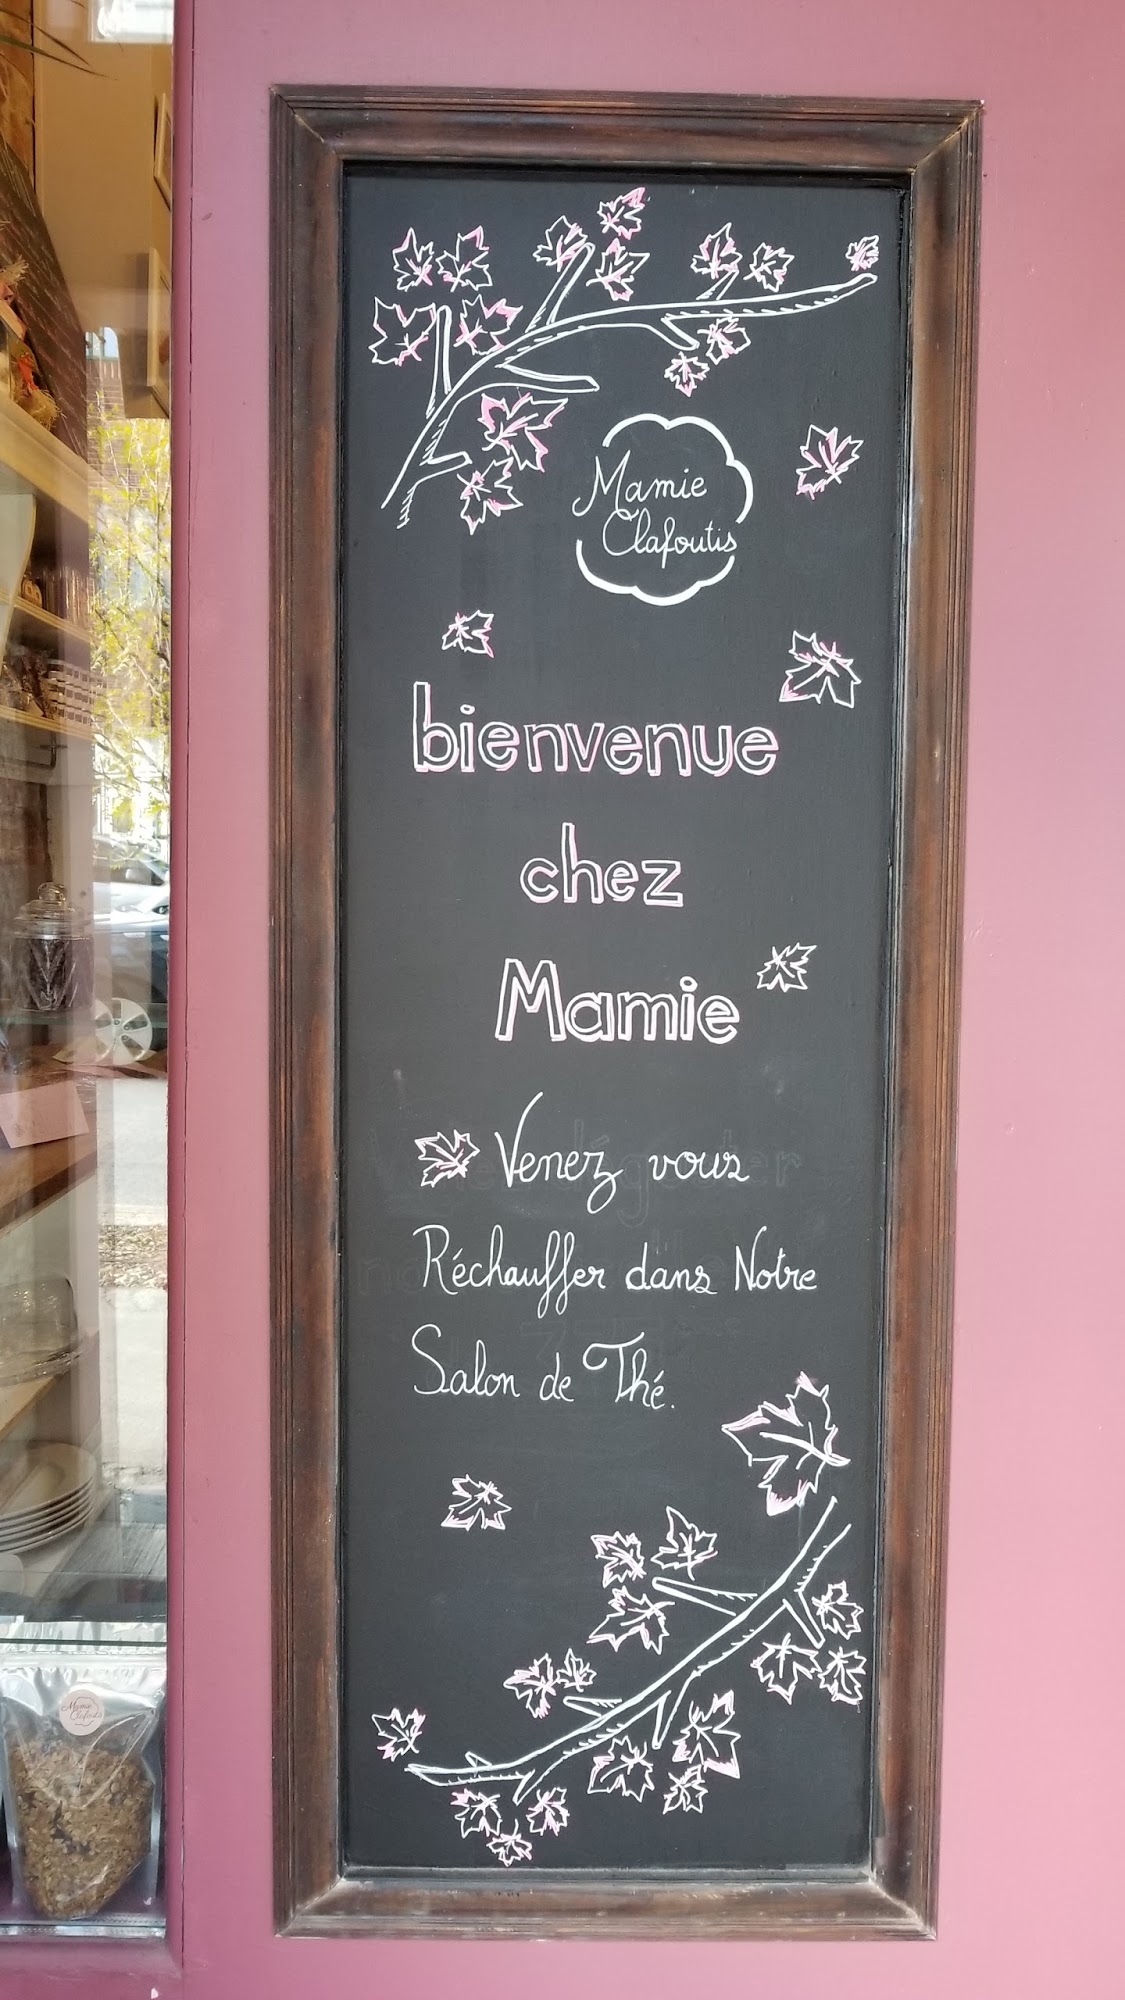 Mamie
Clafoutis
bienvenue
chez
Mamie
Venez vous
Réchauffer dans Notre
Salon de Thé.
Mamie
Clafoutis